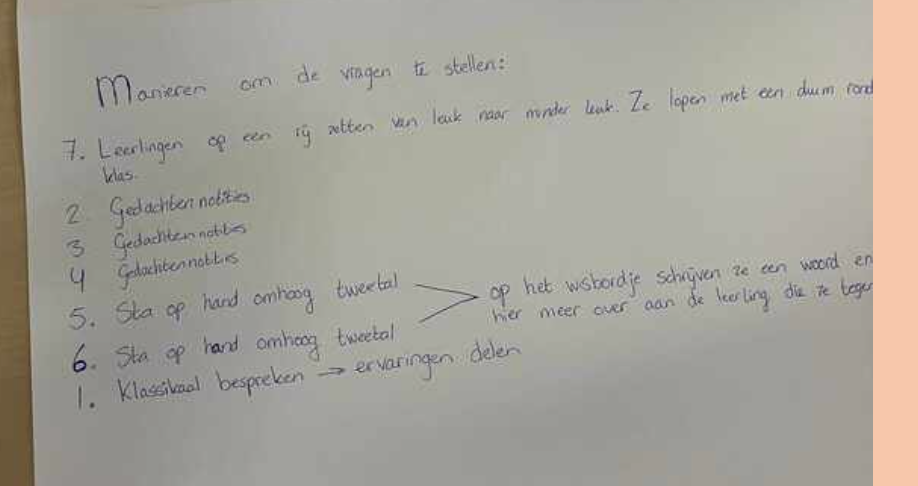 Manieren om de vragen te stellen:
7. Leerlingen op een rij zetten van leuk naar minder leuk. Ze lopen met een duim rond
klas.
2. Gedachten notities
3 Gedachten notities
4 Gedachten notities
5. Sta op hand omhoog tweetal
6. Sta op hand omhoog tweetal
op het wisbordje schrijven ze een woord en
hier meer over aan de leerling die ze
1. Klassikaal bespreken → ervaringen delen